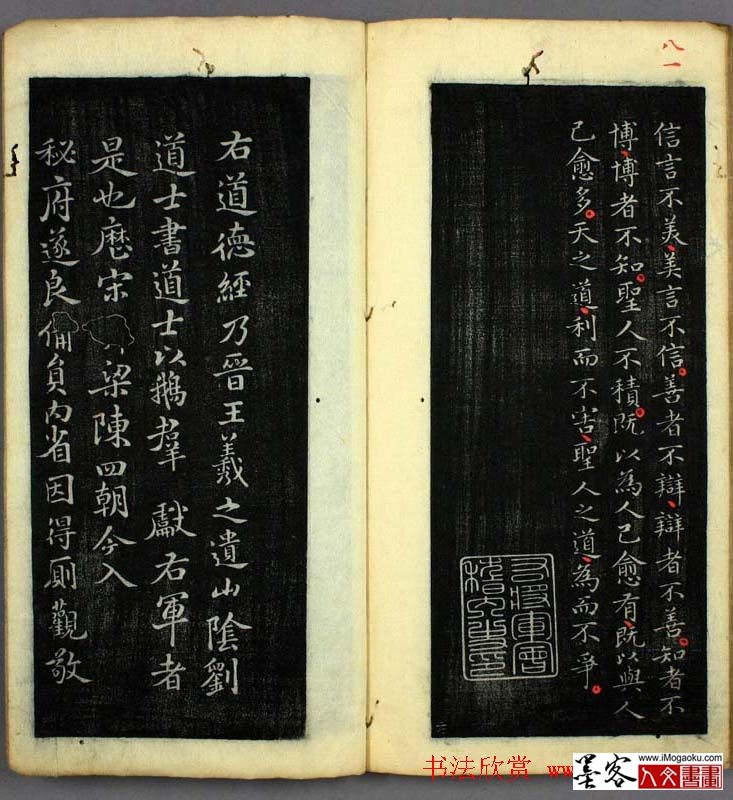 八一
信言不美美言不信善者不辯辯者不善知者不
博博者不知聖人不積既以為人已愈有既以與人
已愈多天之道利而不害聖人之道為而不爭
右將軍會
稽內史印
右道德經乃晉王羲之遺山陰劉
道士書道士以鵝群獻右軍者
是也歷宋梁陳四朝今入
秘府遂良備員內省因得廁觀敬
书法欣赏 ww
墨客 www.iMogaoku.com
人文書畫